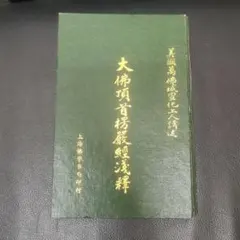 美國萬佛城宣化上人講述
大佛頂首楞嚴經淺釋